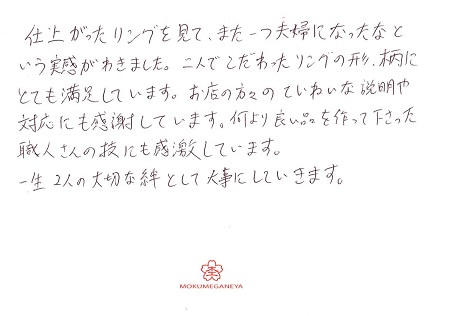 仕上がったリングを見て、また一つ夫婦になったなと
いう実感がわきました。二人でこだわったリングの形、柄に
とても満足しています。お店の方々のていねいな説明や
対応にも感謝しています。何より良い品を作って下さった
職人さんの技にも感激しています。
一生2人の大切な絆として大事にしていきます。
MOKUMEGANEYA